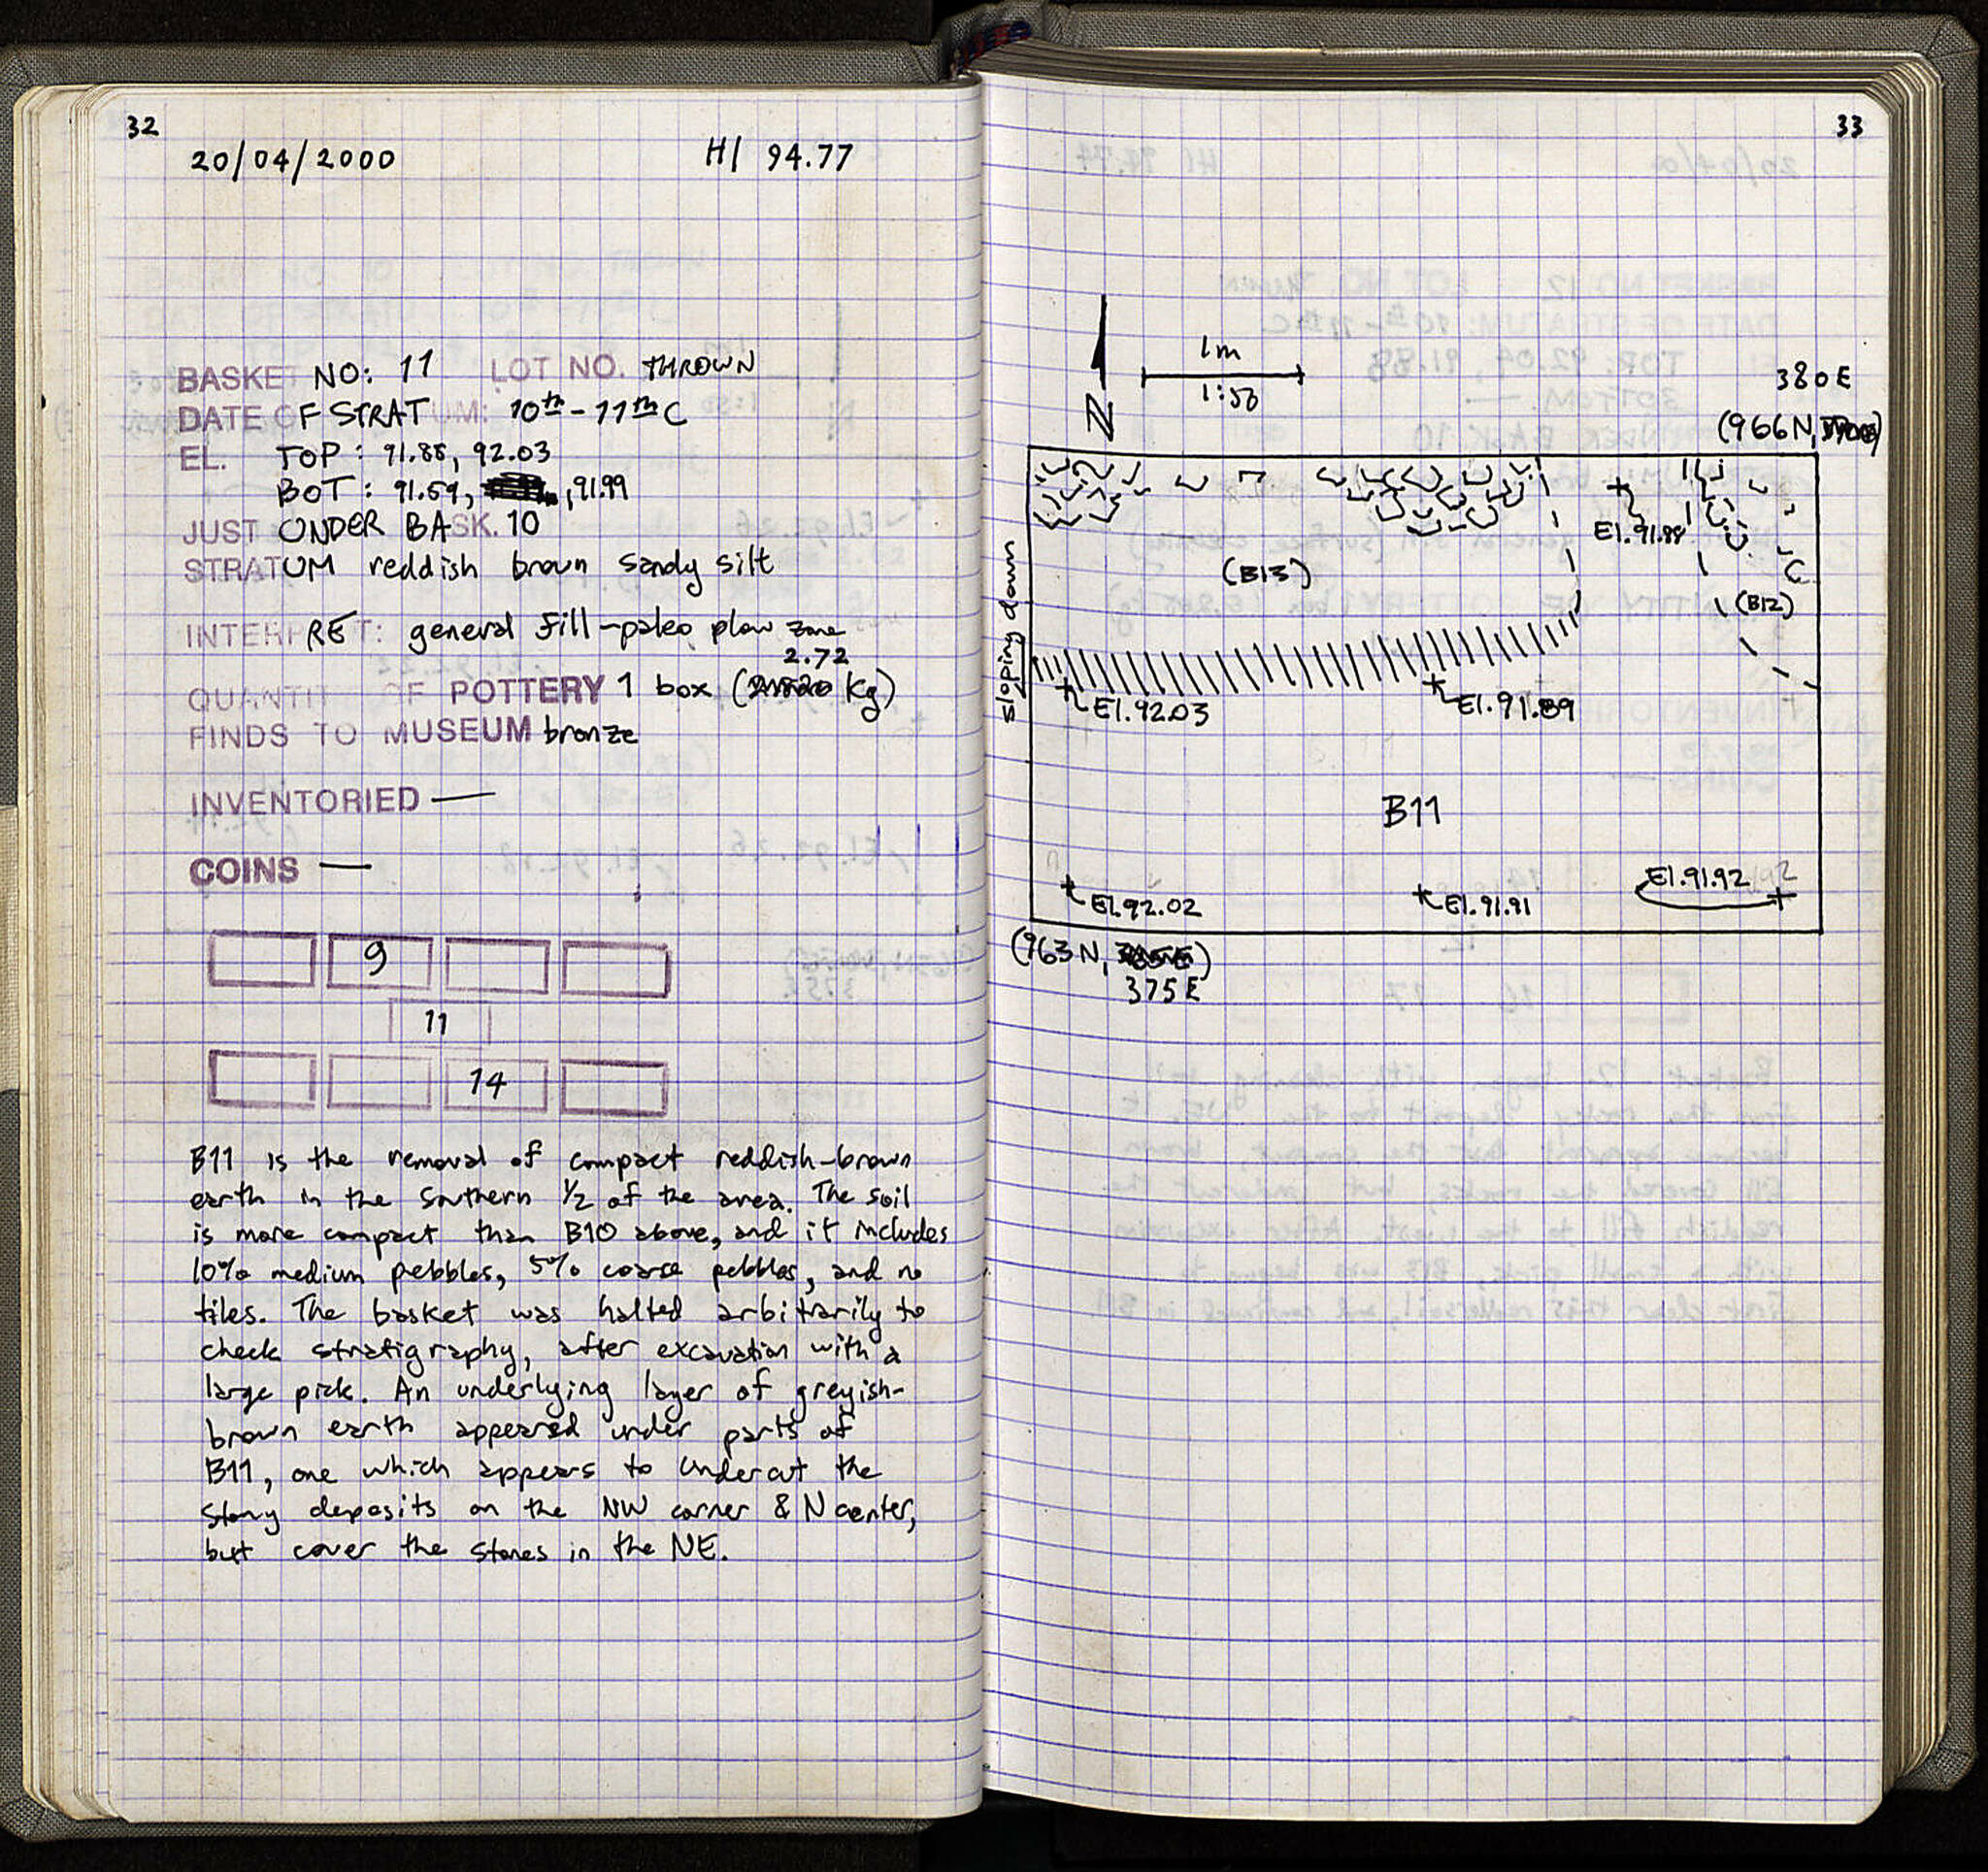 32
20/04/2000 HI 94.77
BASKET NO: 11 LOT NO. THROWN
DATE OF STRATUM: 10th - 11th C
EL. TOP: 91.88, 92.03
BOT: 91.59, , 91.99
JUST UNDER BASK. 10
STRATUM reddish brown sandy silt
INTERPRET: general fill-paleo plow zone
2.72
QUANTITY OF POTTERY 1 box ( kg)
FINDS TO MUSEUM bronze
INVENTORIED —
COINS —
9
11
14
B11 is the removal of compact reddish-brown
earth in the southern 1/2 of the area. The soil
is more compact than B10 above, and it includes
10% medium pebbles, 5% coarse pebbles, and no
tiles. The basket was halted arbitrarily to
check stratigraphy, after excavation with a
large pick. An underlying layer of greyish-
brown earth appeared under parts of
B11, one which appears to undercut the
stony deposits on the NW corner & N center,
but cover the stones in the NE.
33
1m
1:50
N
380E
(966N, )
El. 91.88
(B13)
(B12)
sloping down
El. 92.03
El. 91.89
B11
El. 91.92
El. 92.02
El. 91.91
(963N, )
375E